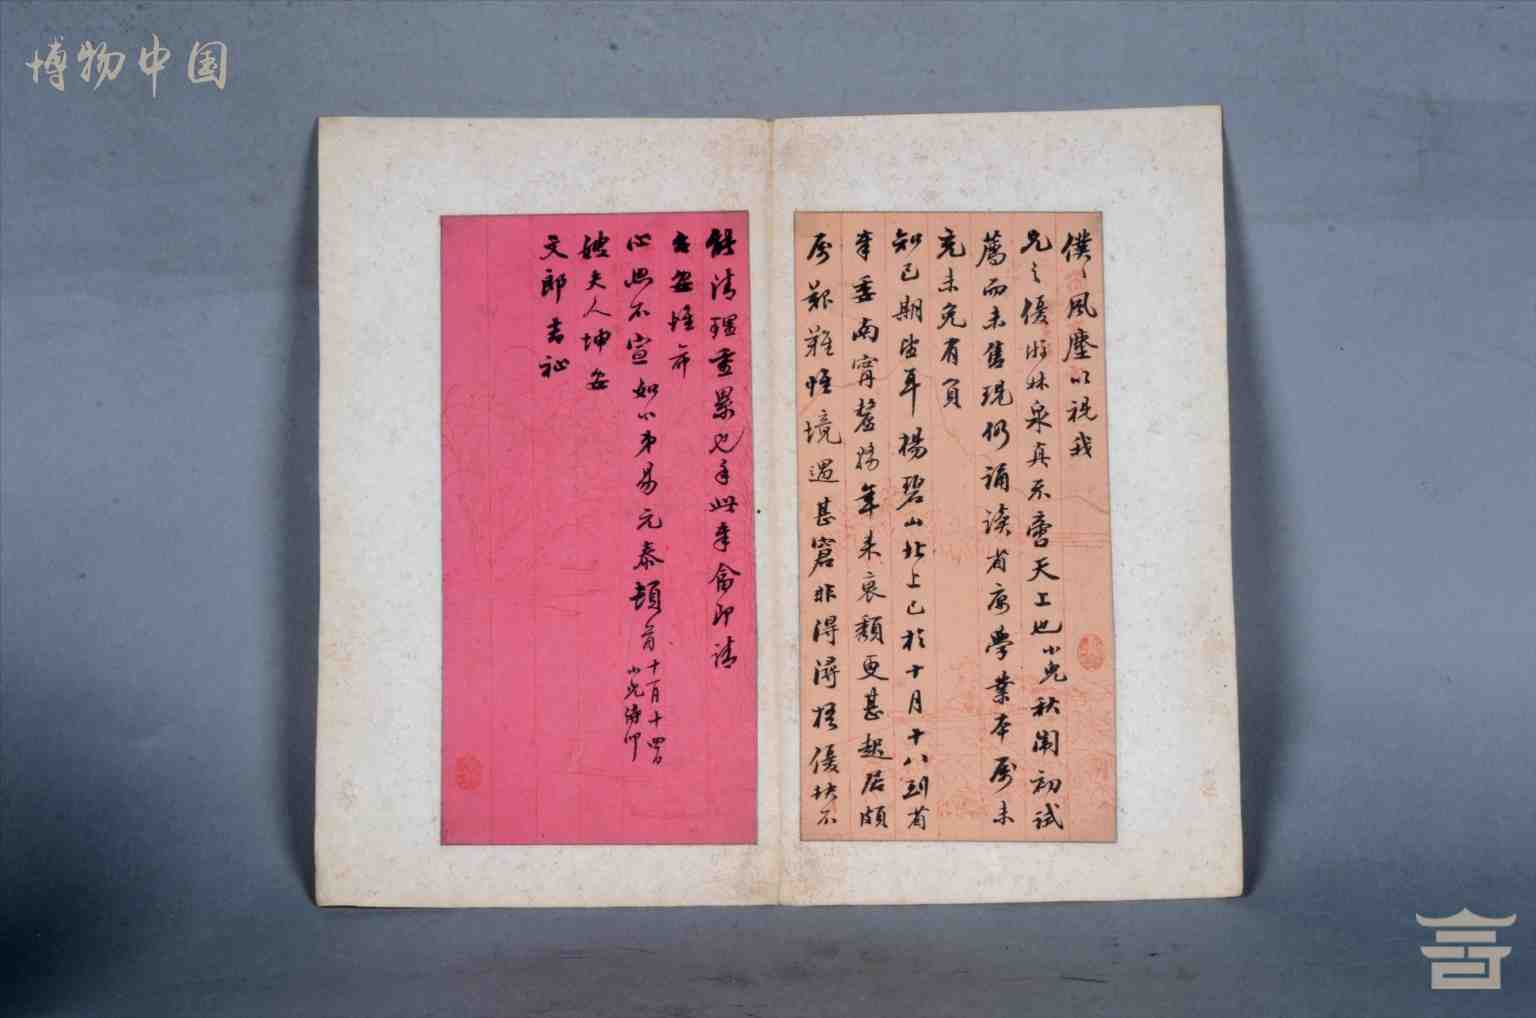 博物中国
僕々風塵以視我
兄之優游林泉真不啻天上也小兒秋闈初試
薦而未售現仍誦讀省寓學業本屬未
充未免有負
知己期望耳楊碧山北上已於十月十八到省
弟委南寧釐務年來衰頹更甚起居頗
屬艱難惟境遇甚窘非得潯梧優缺不
能清理重累也手此奉 即請
台安惟希
心照不宣 如小弟易元泰頓首 十百十四日
小兒侍叩
嫂夫人坤安
文郎吉祉